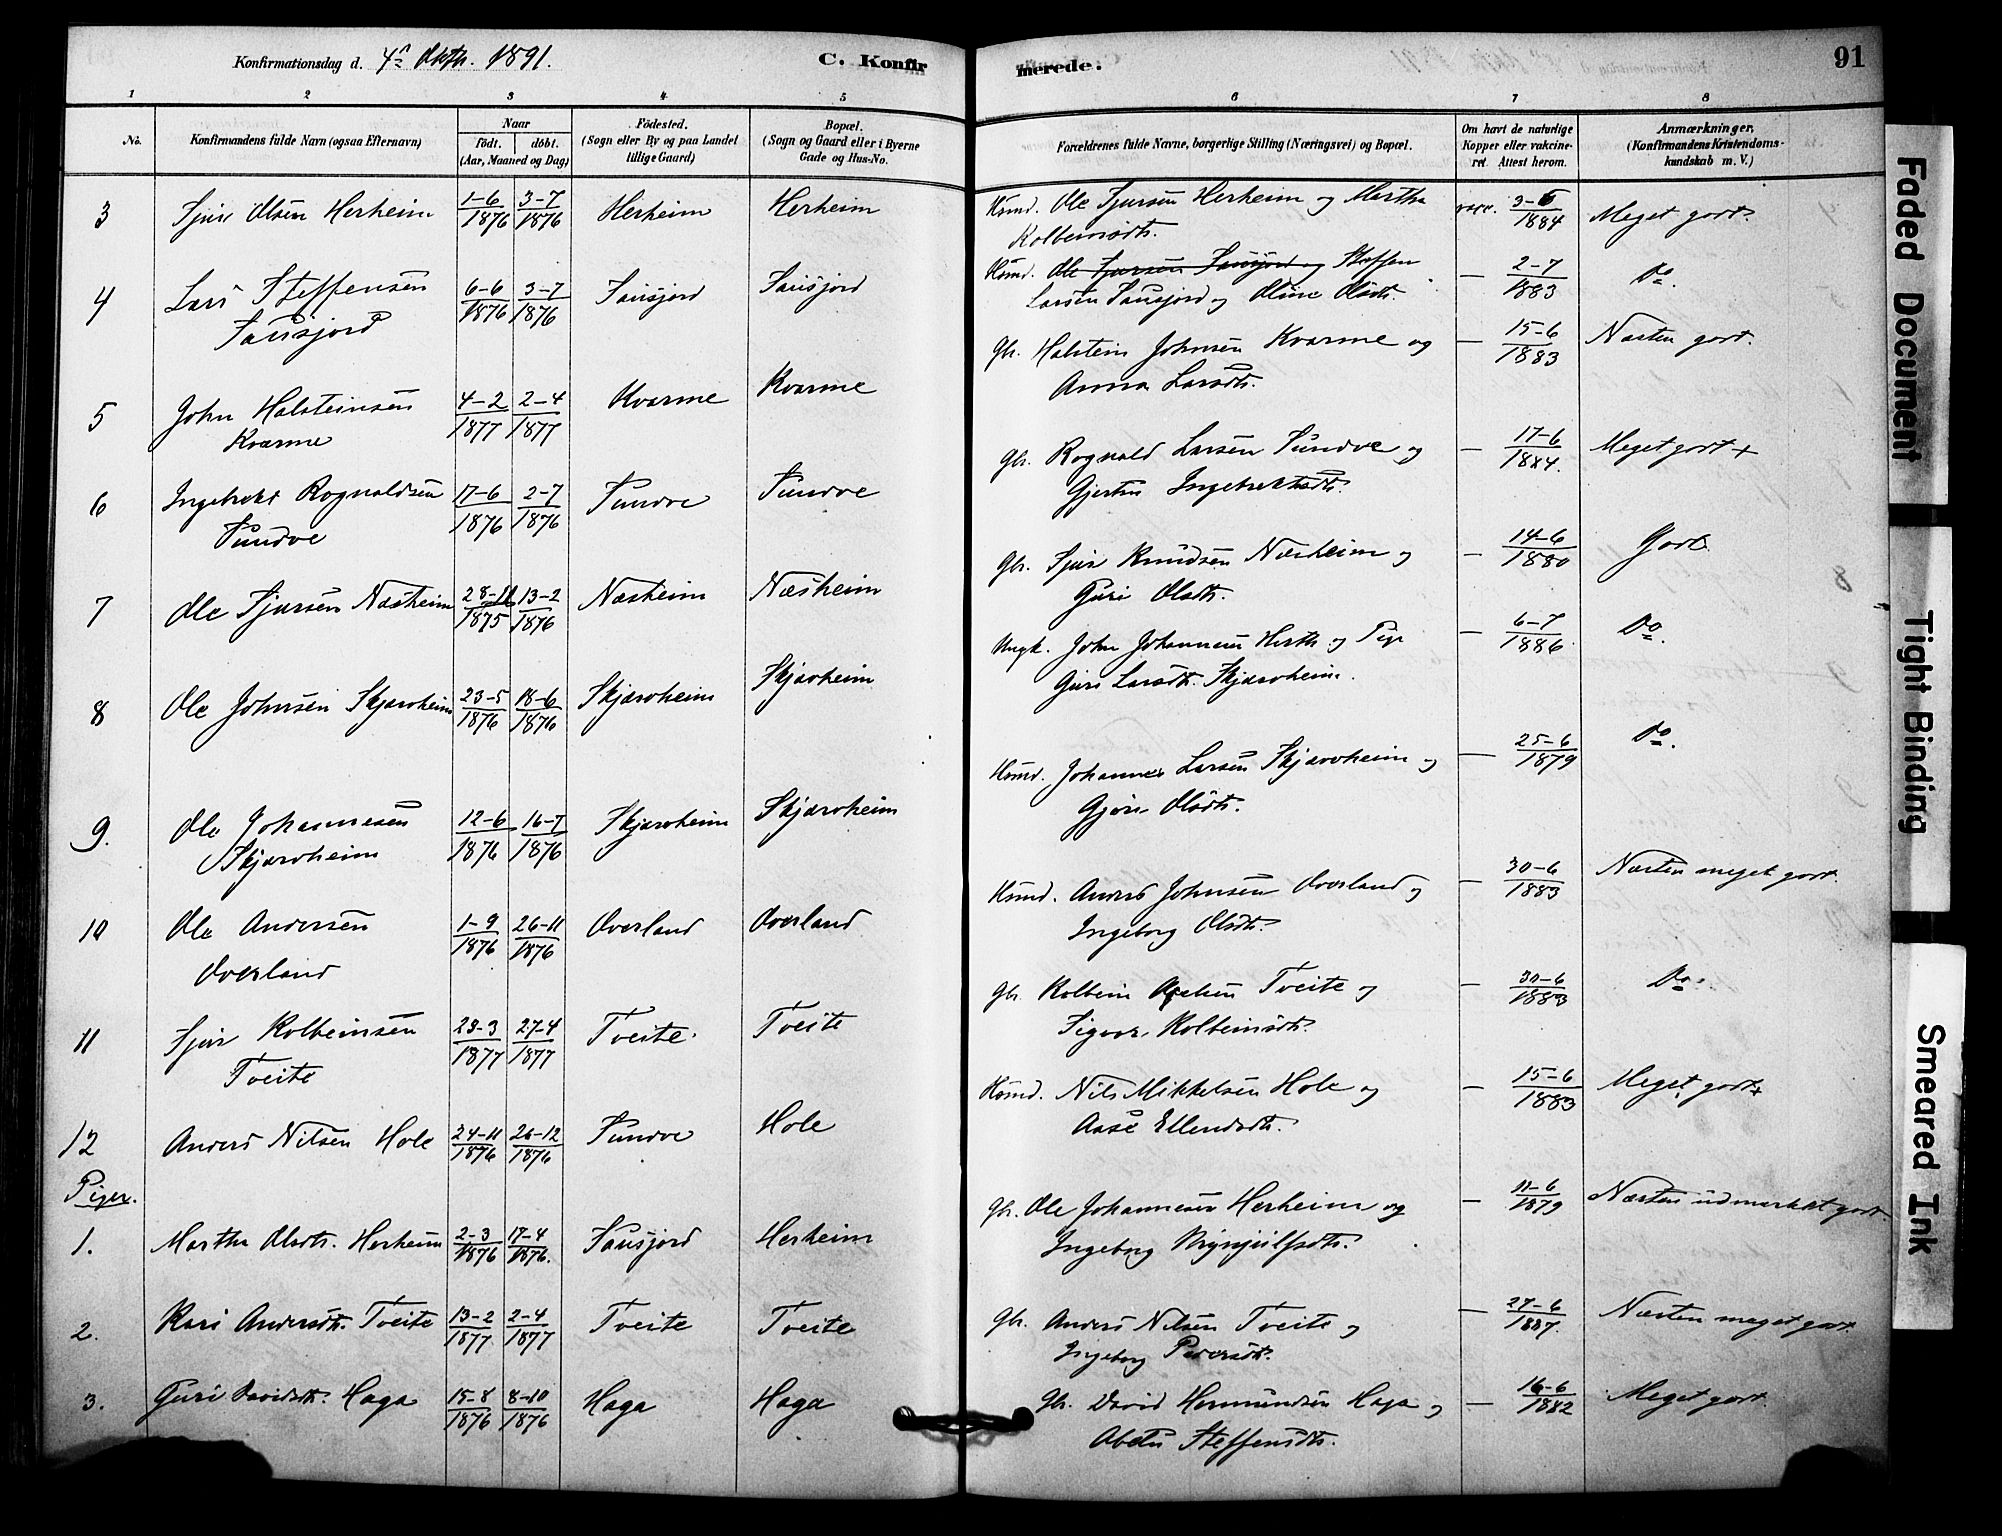 Konfirmationsdag d. 4de Oktbr. 1891.
C. Konfirmerede.
91
1 2 3 4 5 6 7 8
No.
Konfirmandens fulde Navn (ogsaa Efternavn)
Naar
født. døbt.
(Aar, Maaned og Dag)
Fødested.
(Sogn eller By og paa Landet
tillige Gaard)
Bopæl.
(Sogn og Gaard eller i Byerne
Gade og Hus-No.
Forældrenes fulde Navne, borgerlige Stilling (Næringsvei) og Bopæl.
Om havt de naturlige
Kopper eller vakcine-
ret. Attest herom.
Anmærkninger,
(Konfirmandens Kristendoms-
kundskab m. V.)
3 Sjur Olsen Herheim 1-6 1876 3-7 1876 Herheim Herheim Hsmd. Ole Sjursen Herheim og Martha vacc. 3-6 1884 Meget godt
Kolbeinsdtr.
4 Lars Steffensen 6-6 1876 3-7 1876 Sausjord Sausjord Hsmd. Ole Sjursen Sausjord og Steffen — 2-7 1883 Do.
Sausjord Larsen Sausjord og Oline Olsdtr.
5 John Halsteinsen 4-2 1877 2-4 1877 Kvarme Kvarme Gbr. Halstein Johnsen Kvarme og — 15-6 1883 Næsten godt.
Kvarme Anna Larsdtr.
6 Ingebrekt Rognaldsen 17-6 1876 2-7 1876 Sundve Sundve Gbr. Rognald Larsen Sundve og — 17-6 1884. Meget godt +
Sundve Gjertru Ingebrektsdtr.
7 Ole Sjursen Næsheim 28-11 1875 13-2 1876 Næsheim Næsheim Gbr. Sjur Knudsen Næsheim og — 14-6 1880 Godt
Guri Olsdtr.
8 Ole Johnsen Skjærvheim 23-5 1876 18-6 1876 Skjærvheim Skjærvheim Ungk. John Johannesen Herth. og Pige — 6-7 1886 Do.
Guri Larsdtr. Skjærvheim.
9. Ole Johannesen 12-6 1876 16-7 1876 Skjærvheim Skjærvheim Hsmd. Johannes Larsen Skjærvheim og — 25-6 1879 Do.
Skjærvheim Gjøri Olsdtr.
10 Ole Andersen 1-9 1876 26-11 1876 Overland Overland Hsmd. Anders Johnsen Overland og — 30-6 1883 Næsten meget godt.
Overland Ingeborg Olsdtr.
11 Sjur Kolbeinsen 23-3 1877 27-4 1877 Tveite. Tveite Gbr. Kolbein Tveite og — 30-6 1883 Do.
Tveite Sigvor Kolbeinsdtr.
12 Anders Nilsen Hole 24-11 1876 26-12 1876 Sundve Hole Hsmd. Nils Mikkelsen Hole og — 15-6 1883 Meget godt +
Aase Ellendsdtr.
Piger.
1. Martha Olsdtr. Herheim 2-3 1876 17-4 1876. Sausjord Herheim Gbr. Ole Johannesen Herheim og — 11-6 1879 Næsten udmærket godt.
Ingeborg Brynjulfsdtr.
2. Kari Andersdtr. Tveite 13-2 1877 2-4 1877 Tveite Tveite Gbr. Anders Nilsen Tveite og — 27-6 1887. Næsten meget godt.
Ingeborg Pedersdtr.
3. Guri Davidsdtr. Haga 15-8 1876 8-10 1876 Haga Haga Gbr. David Hermundsen Haga og — 16-6 1882 Meget godt.
Steffensdtr.
Faded Document
Tight Binding
Smeared Ink